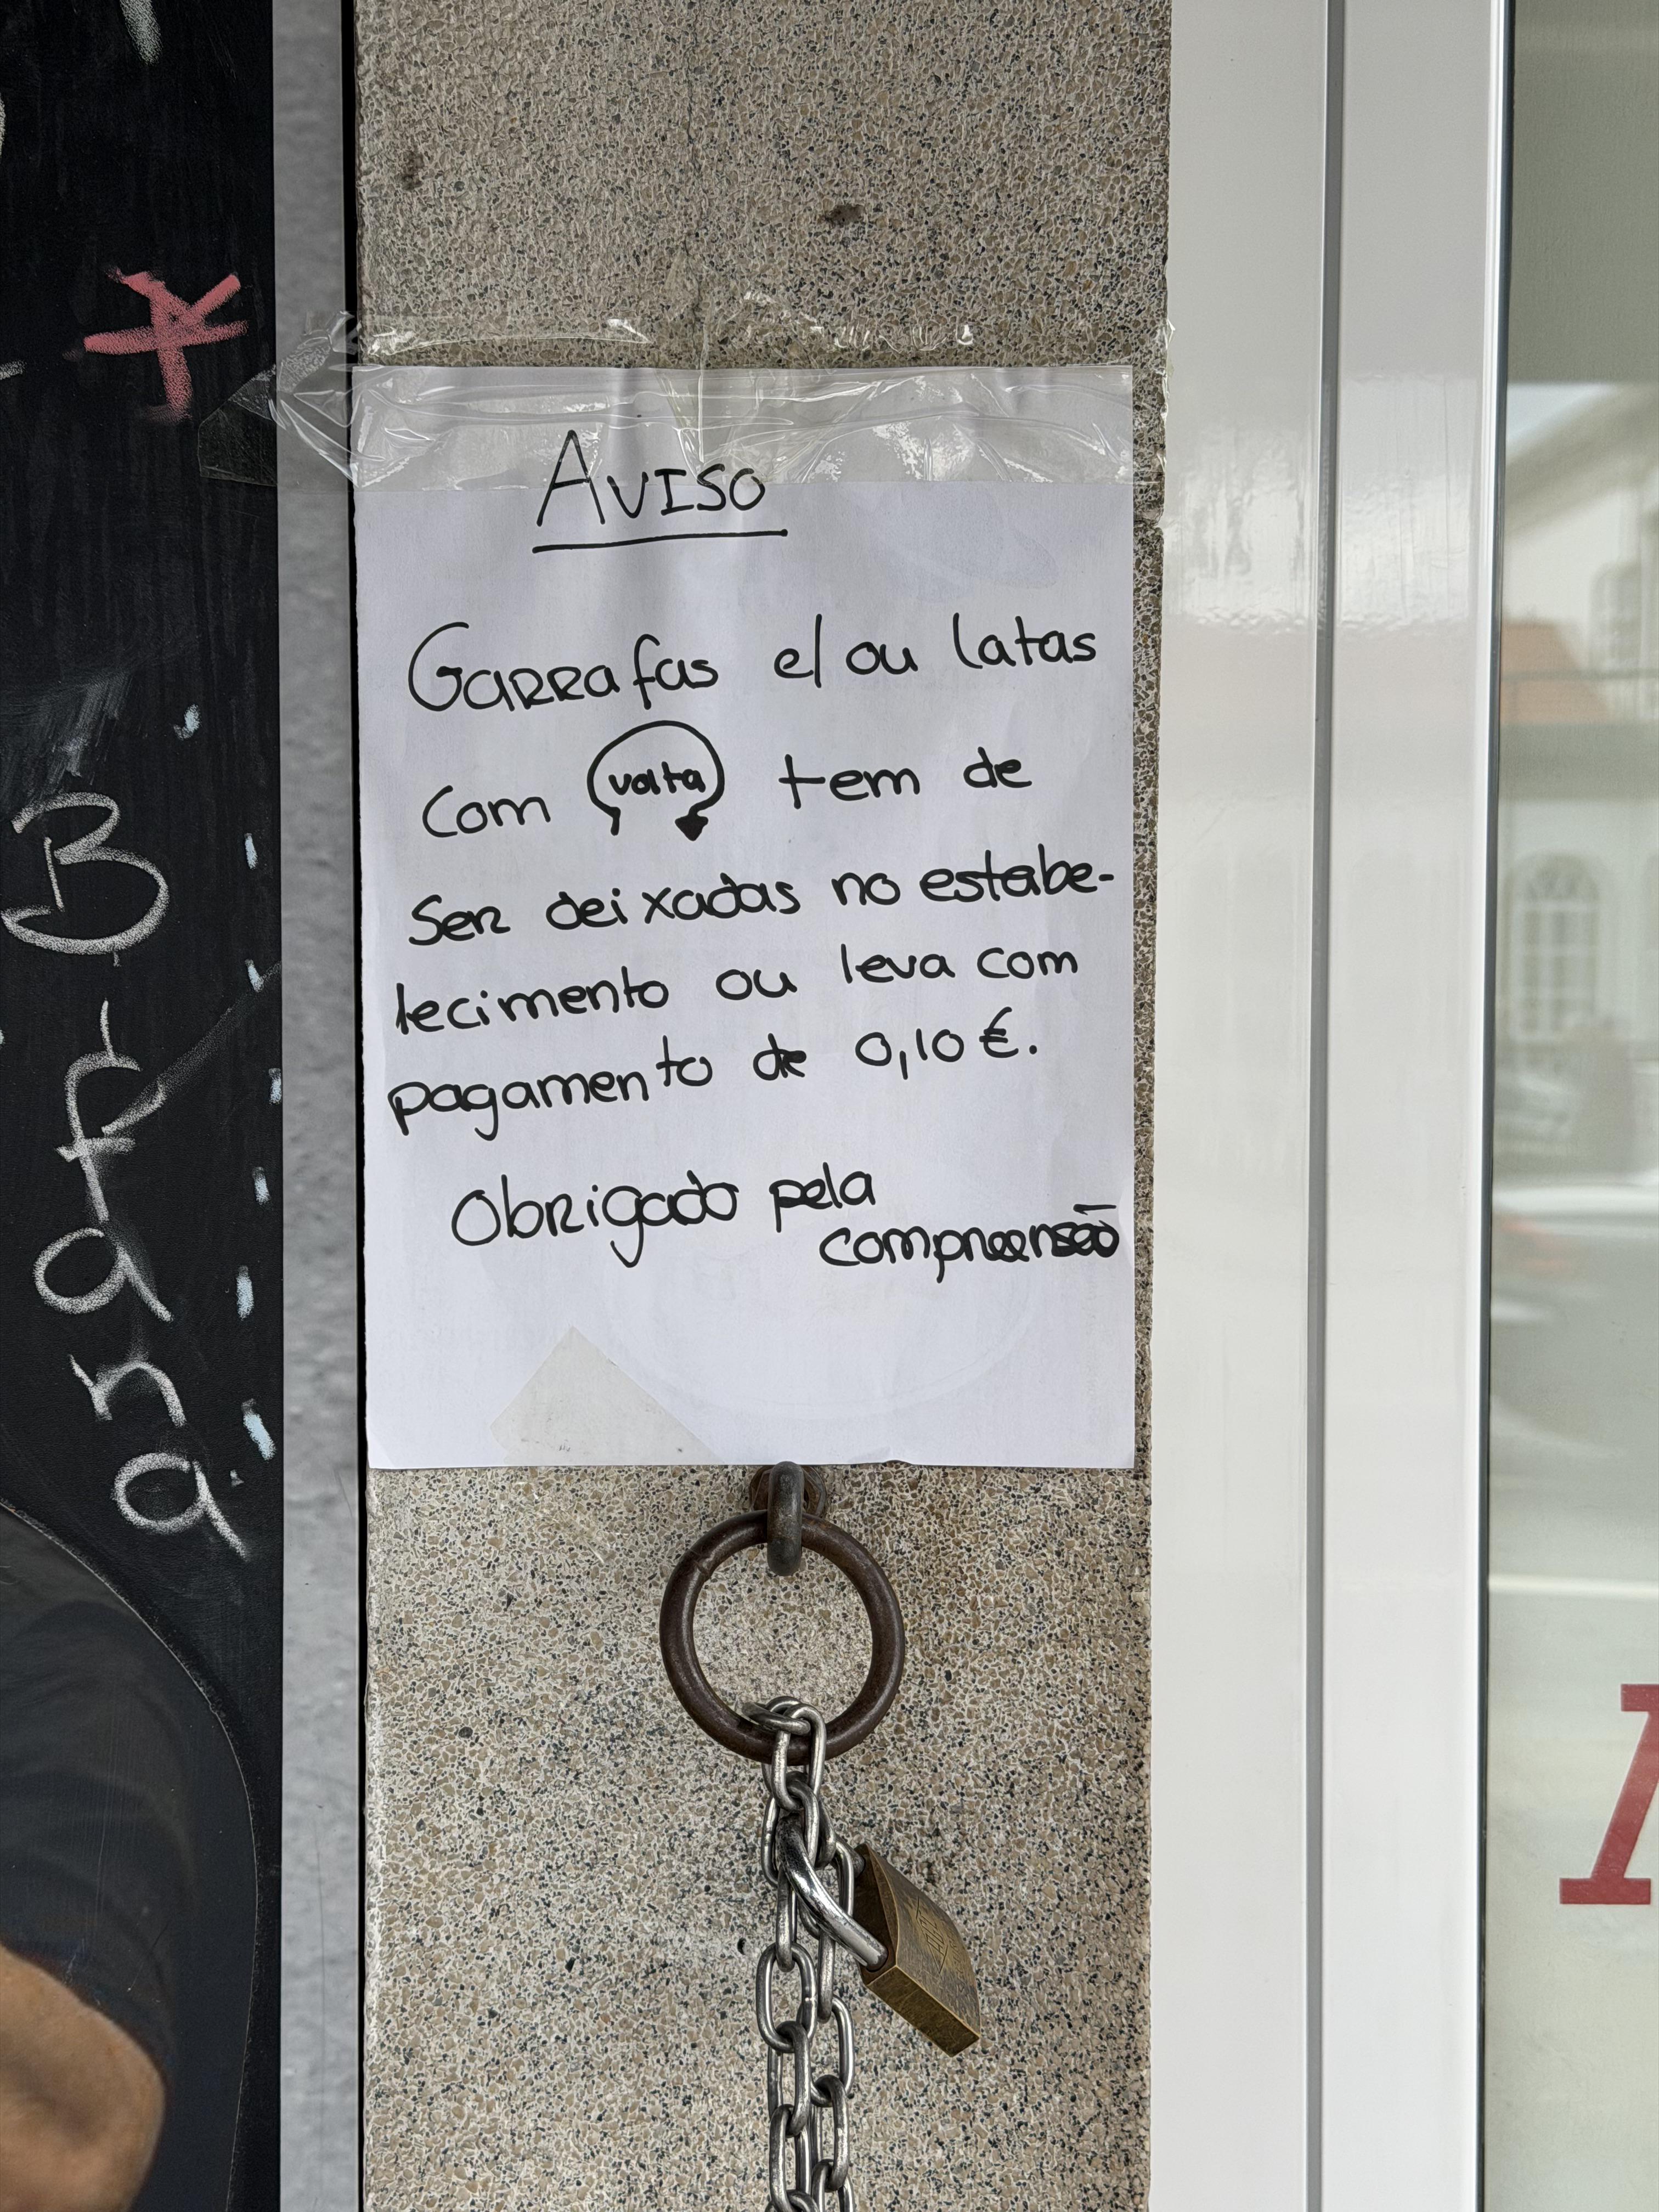 AVISO
Garrafas e/ou latas
com volta tem de
ser deixadas no estabe-
lecimento ou leva com
pagamento de 0,10 €.
Obrigado pela
compreensão